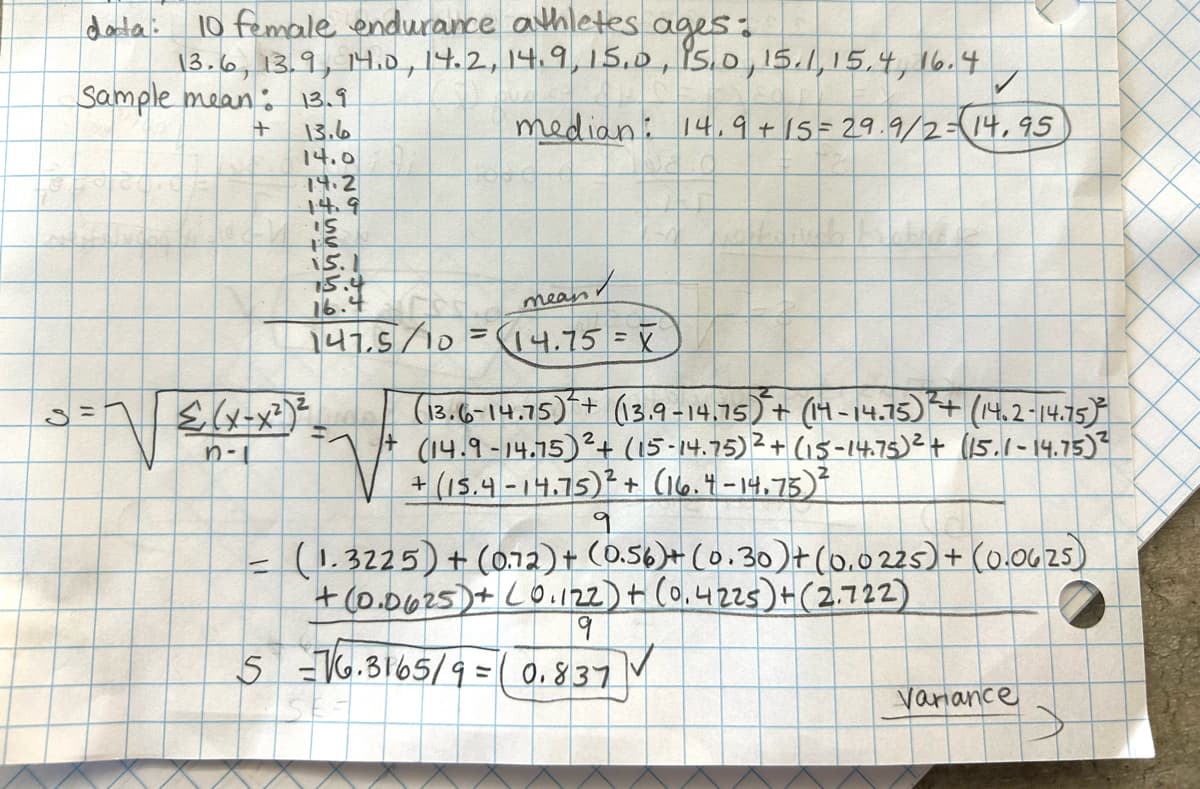 data: 10 female endurance athletes ages:
13.6, 13.9, 14.0, 14.2, 14.9, 15.0, 15.0, 15.1, 15.4, 16.4
Sample mean: 13.9
+ 13.6
median: 14.9 + 15 = 29.9/2 = 14.95 ✓
14.0
14.2
14.9
15
15
15.1
15.4
16.4
mean ✓
147.5/10 = 14.75 = x̄
s = √ Σ(x-x²)² / n-1 = √ (13.6-14.75)² + (13.9-14.75)² + (14-14.75)² + (14.2-14.75)²
+ (14.9-14.75)² + (15-14.75)² + (15-14.75)² + (15.1-14.75)²
+ (15.4-14.75)² + (16.4-14.75)²
9
= (1.3225) + (0.72) + (0.56) + (0.30) + (0.0225) + (0.0625)
+ (0.0625) + (0.122) + (0.4225) + (2.722)
9
S = √6.3165/9 = 0.837 ✓
variance